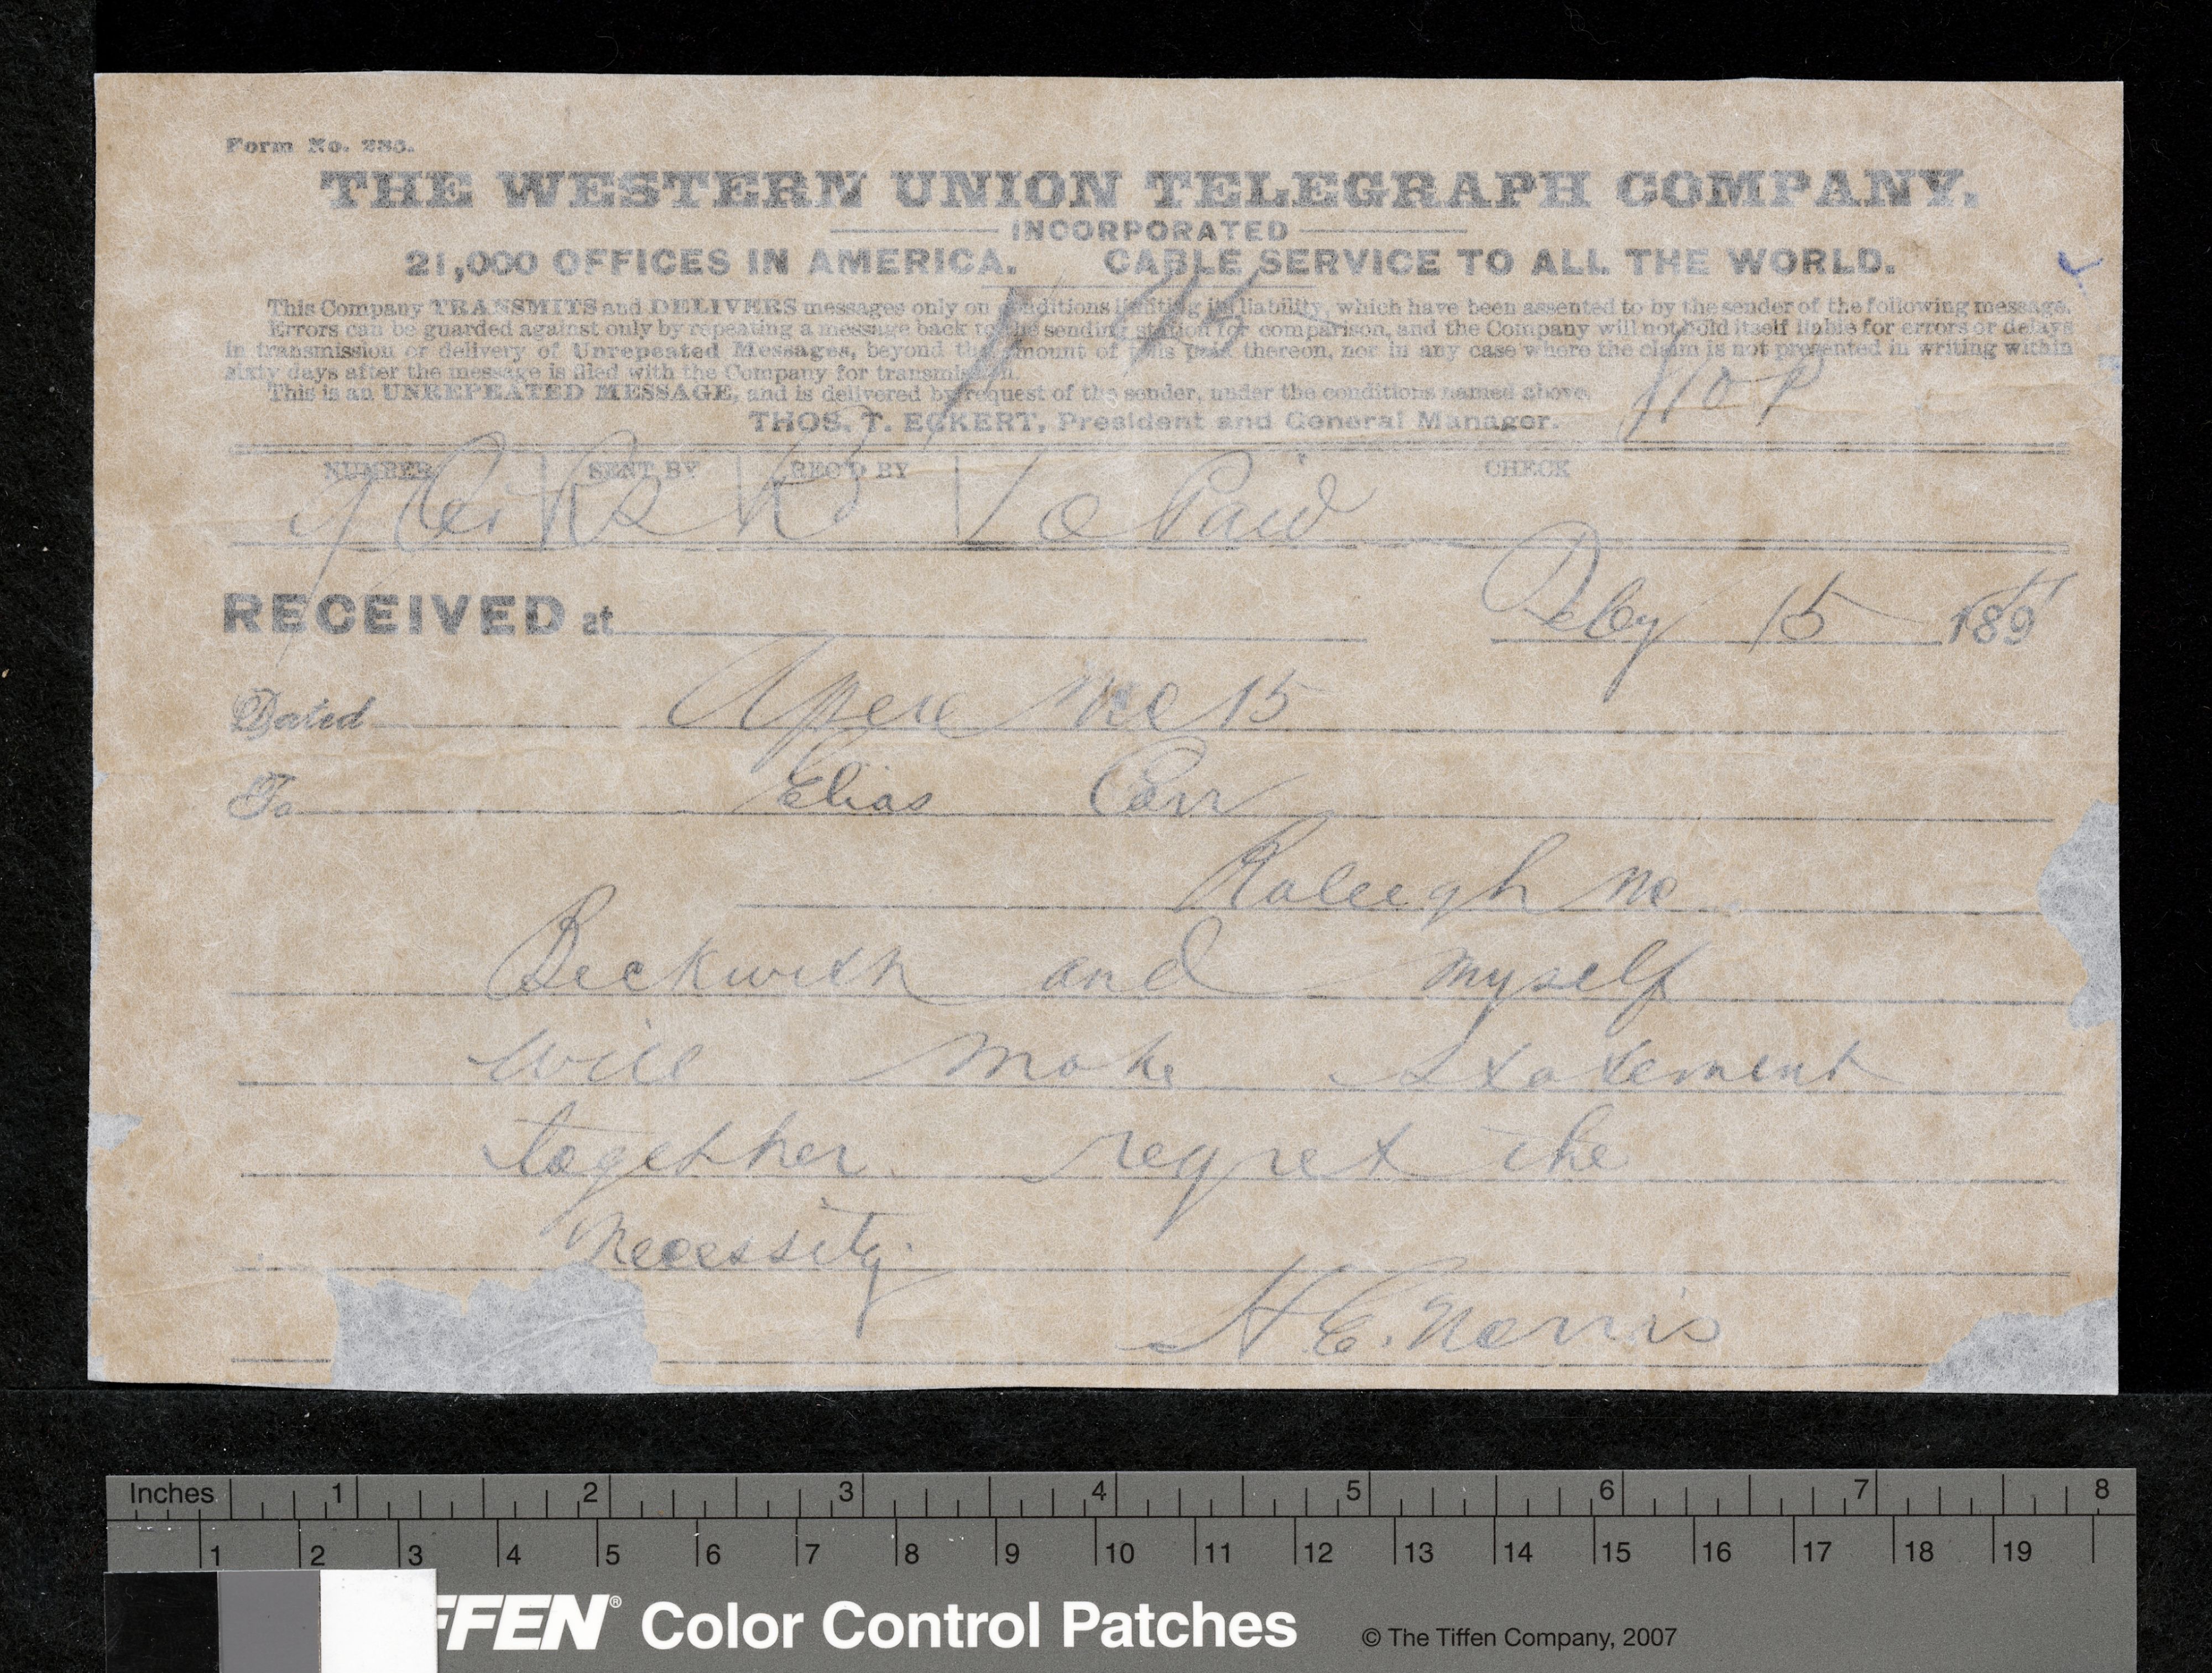 Form No. 286.
THE WESTERN UNION TELEGRAPH COMPANY.
INCORPORATED
21,000 OFFICES IN AMERICA. CABLE SERVICE TO ALL THE WORLD.
This Company TRANSMITS and DELIVERS messages only on conditions limiting its liability, which have been assented to by the sender of the following message.
Errors can be guarded against only by repeating a message back to the sending station for comparison, and the Company will not hold itself liable for errors or delays
in transmission or delivery of Unrepeated Messages, beyond the amount of tolls paid thereon, nor in any case where the claim is not presented in writing within
sixty days after the message is filed with the Company for transmission.
This is an UNREPEATED MESSAGE, and is delivered by request of the sender, under the conditions named above.
THOS. T. ECKERT, President and General Manager.
110 P
NUMBER SENT BY REC'D BY CHECK
10 Paid
RECEIVED at Feby 15 189
Dated Apex NC 15
To Elias Carr
Raleigh NC
Beckwith and myself
will make statement
together regret the
necessity.
H. C. Norris
Inches 1 2 3 4 5 6 7 8
1 2 3 4 5 6 7 8 9 10 11 12 13 14 15 16 17 18 19
FFEN® Color Control Patches © The Tiffen Company, 2007